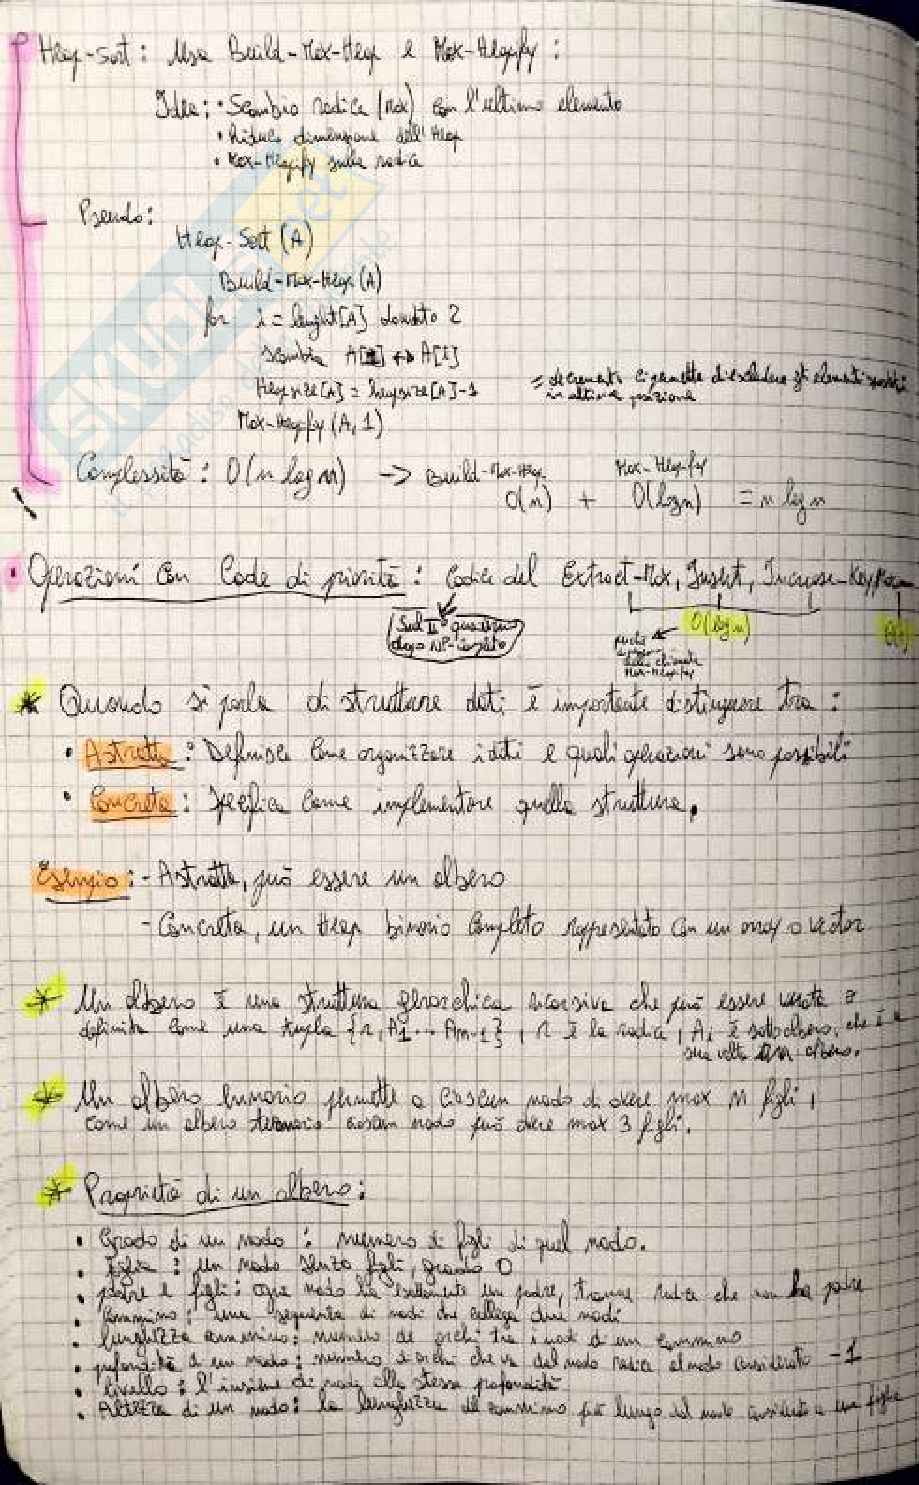 Heap-Sort: Usa Build-Max-Heap e Max-Heapify:
Idea: • Scambio radice (Max) con l'ultimo elemento
• Riduco dimensione dell'Heap
• Max-Heapify sulla radice
Pseudo:
Heap-Sort (A)
Build-Max-Heap (A)
for i = lenght[A] downto 2
scambia A[1] ↔ A[i]
Heapsize[A] = heapsize[A]-1 = decremento ci permette di escludere gli elementi
in ultima posizione
Max-Heapify (A, 1)
Complessità: O(n log n) -> Build-Max-Heap O(n) + Max-Heapify O(log n) = n log n
• Operazioni con Code di priorità: Codice del Extract-Max, Insert, Increase-Key
Sul II° quaderno
dopo NP-Completo
O(log n)
chiamata
Max-Heapify
* Quando si parla di strutture dati è importante distinguere tra:
• Astratta: Definisce come organizzare i dati e quali operazioni sono possibili
• Concreta: Specifica come implementare quella struttura.
Esempio: - Astratta, può essere un albero
- Concreta, un Heap binario completo rappresentato con un array o vector
* Un albero è una struttura gerarchica ricorsiva che può essere
definita come una tupla {r, A1 ... An-1}, r è la radice, Ai è sottoalbero, che è a
sua volta un albero.
* Un albero permette a ciascun nodo di avere max n figli,
come un albero ternario ciascun nodo può avere max 3 figli.
* Proprietà di un albero:
• Grado di un nodo: numero di figli di quel nodo.
• Foglia: un nodo senza figli, grado 0
• padre e figli: ogni nodo ha esattamente un padre, tranne radice che non ha padre
• Cammino: una sequenza di nodi che collega due nodi
• lunghezza cammino: numero di archi tra i nodi di un cammino
• profondità di un nodo: numero di archi che va dal nodo radice al nodo considerato -1
• livello: l'insieme di nodi alla stessa profondità
• Altezza di un nodo: la lunghezza del cammino più lungo dal nodo considerato a una foglia